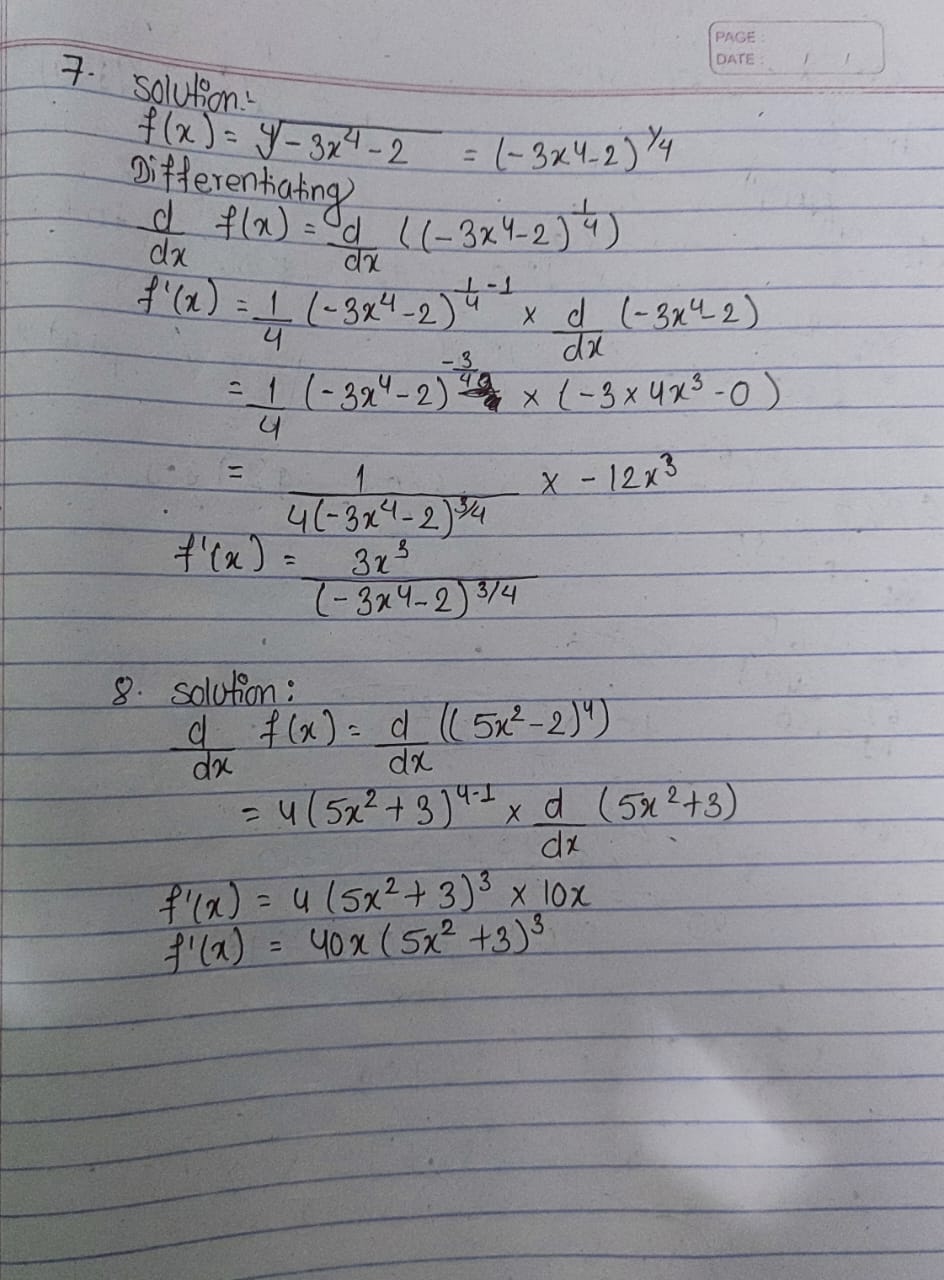 PAGE:
DATE: / /
7. Solution:-
f(x) = ∜-3x⁴-2 = (-3x4-2)^1/4
Differentiating
d/dx f(x) = d/dx ((-3x4-2)^1/4)
f'(x) = 1/4 (-3x⁴-2)^1/4-1 × d/dx (-3x4-2)
= 1/4 (-3x⁴-2)^-3/4 × (-3×4x³-0)
= 1/4(-3x⁴-2)^3/4 × -12x³
f'(x) = 3x³/(-3x4-2)^3/4
8. solution:
d/dx f(x) = d/dx ((5x²-2)⁴)
= 4(5x²+3)^4-1 × d/dx (5x²+3)
f'(x) = 4(5x²+3)³ × 10x
f'(x) = 40x(5x²+3)³